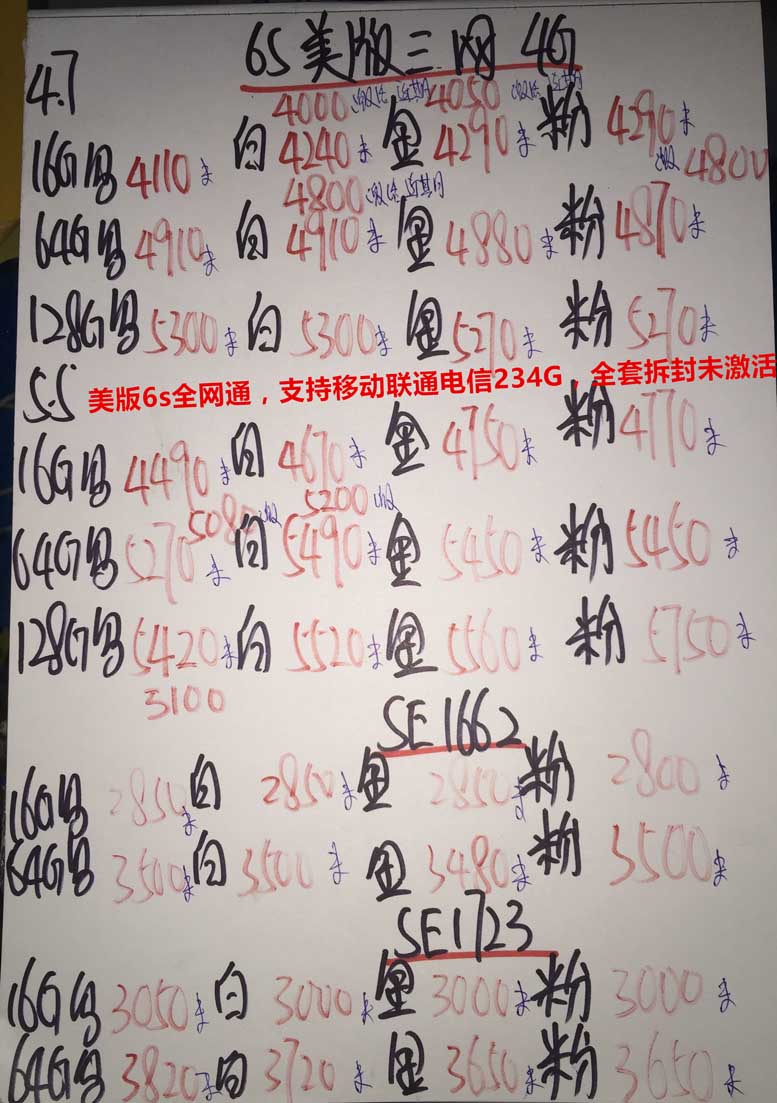 6S 美版三网 4G
4.7
4000 激活 近期 4050 激活 近期
16G 4110 未 白 4240 未 金 4290 未 粉 4290 未
4800 激活 近期 激 4800
64G 4910 未 白 4910 未 金 4880 未 粉 4870 未
128G 5300 未 白 5300 未 金 5270 未 粉 5270 未
5.5 美版6s全网通，支持移动联通电信234G，全套拆封未激活
16G 4490 未 白 4670 未 金 4750 未 粉 4770 未
5080 激 5200 激
64G 5270 未 白 5490 未 金 5450 未 粉 5450 未
128G 5420 未 白 5520 未 金 5560 未 粉 5750 未
5100
SE1662
16G 2850 未 白 2850 未 金 2850 未 粉 2800 未
64G 3500 未 白 3500 未 金 3480 未 粉 3500 未
SE1723
16G 3050 未 白 3000 未 金 3000 未 粉 3000 未
64G 3820 未 白 3720 未 金 3650 未 粉 3650 未